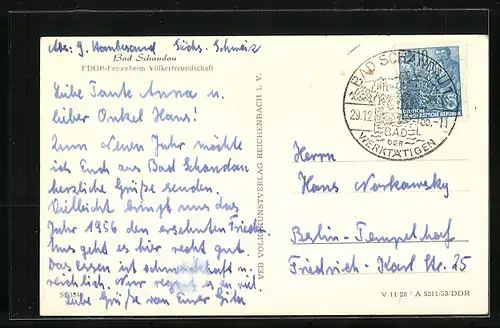 Abs: G. Sächs. Schweiz
Bad Schandau
FDGB-Ferienheim Völkerfreundschaft
Liebe Tante Anna u.
lieber Onkel Hans!
Zum Neuen Jahr möchte
ich Euch aus Bad Schandau
herzliche Grüße senden.
Vielleicht bringt uns das
Jahr 1956 den ersehnten Frieden.
Uns geht es hier recht gut.
Das Essen ist schmackhaft u.
reichlich. Nur regnet es zu viel.
Liebe Grüße von Eurer Gita
VEB VOLKSKUNSTVERLAG REICHENBACH I. V.
BAD SCHANDAU
29.12.
BAD
DER
WERKTÄTIGEN
DEUTSCHE
DEMOKRATISCHE REPUBLIK
Herrn
Hans
Berlin-Tempelhof
Friedrich-Karl Str. 25
V 11-28 A 5211/53/DDR